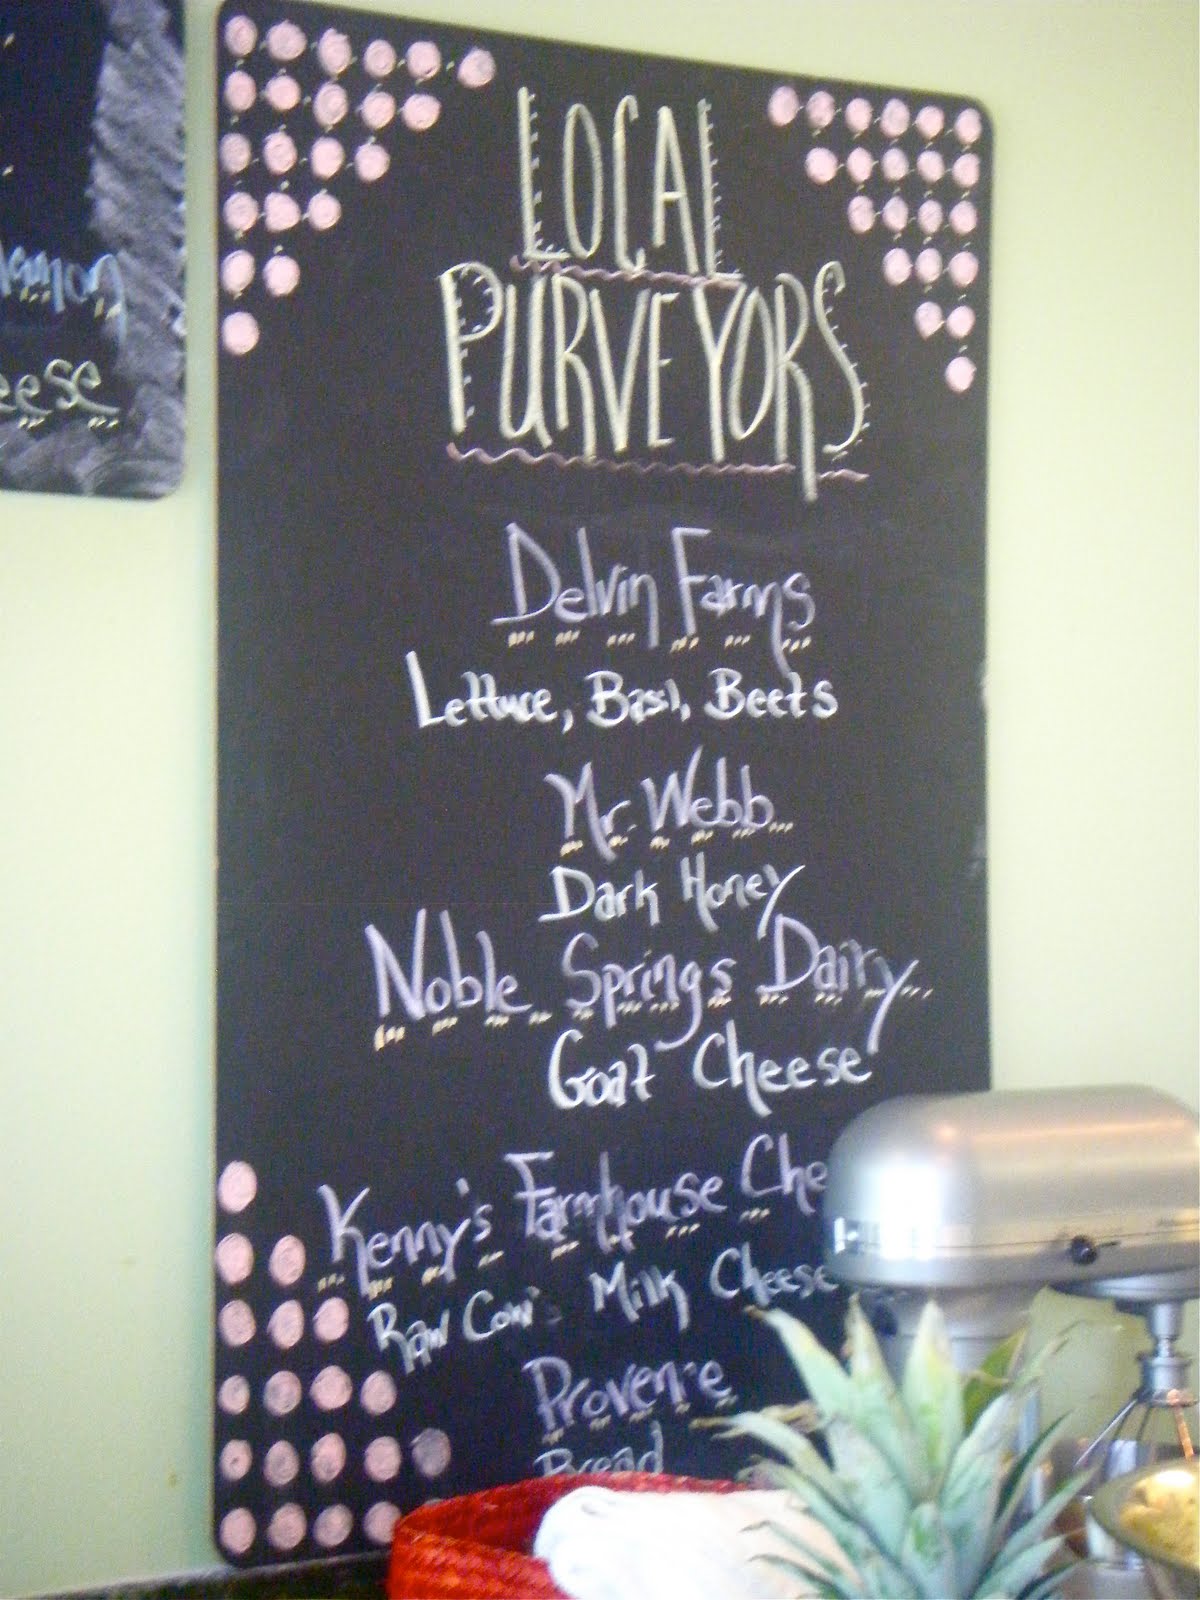 LOCAL
PURVEYORS
Delvin Farms
Lettuce, Basil, Beets
Mr. Webb
Dark Honey
Noble Springs Dairy
Goat Cheese
Kenny's Farmhouse Che
Raw Cow's Milk Cheese
Provence
Bread
eese